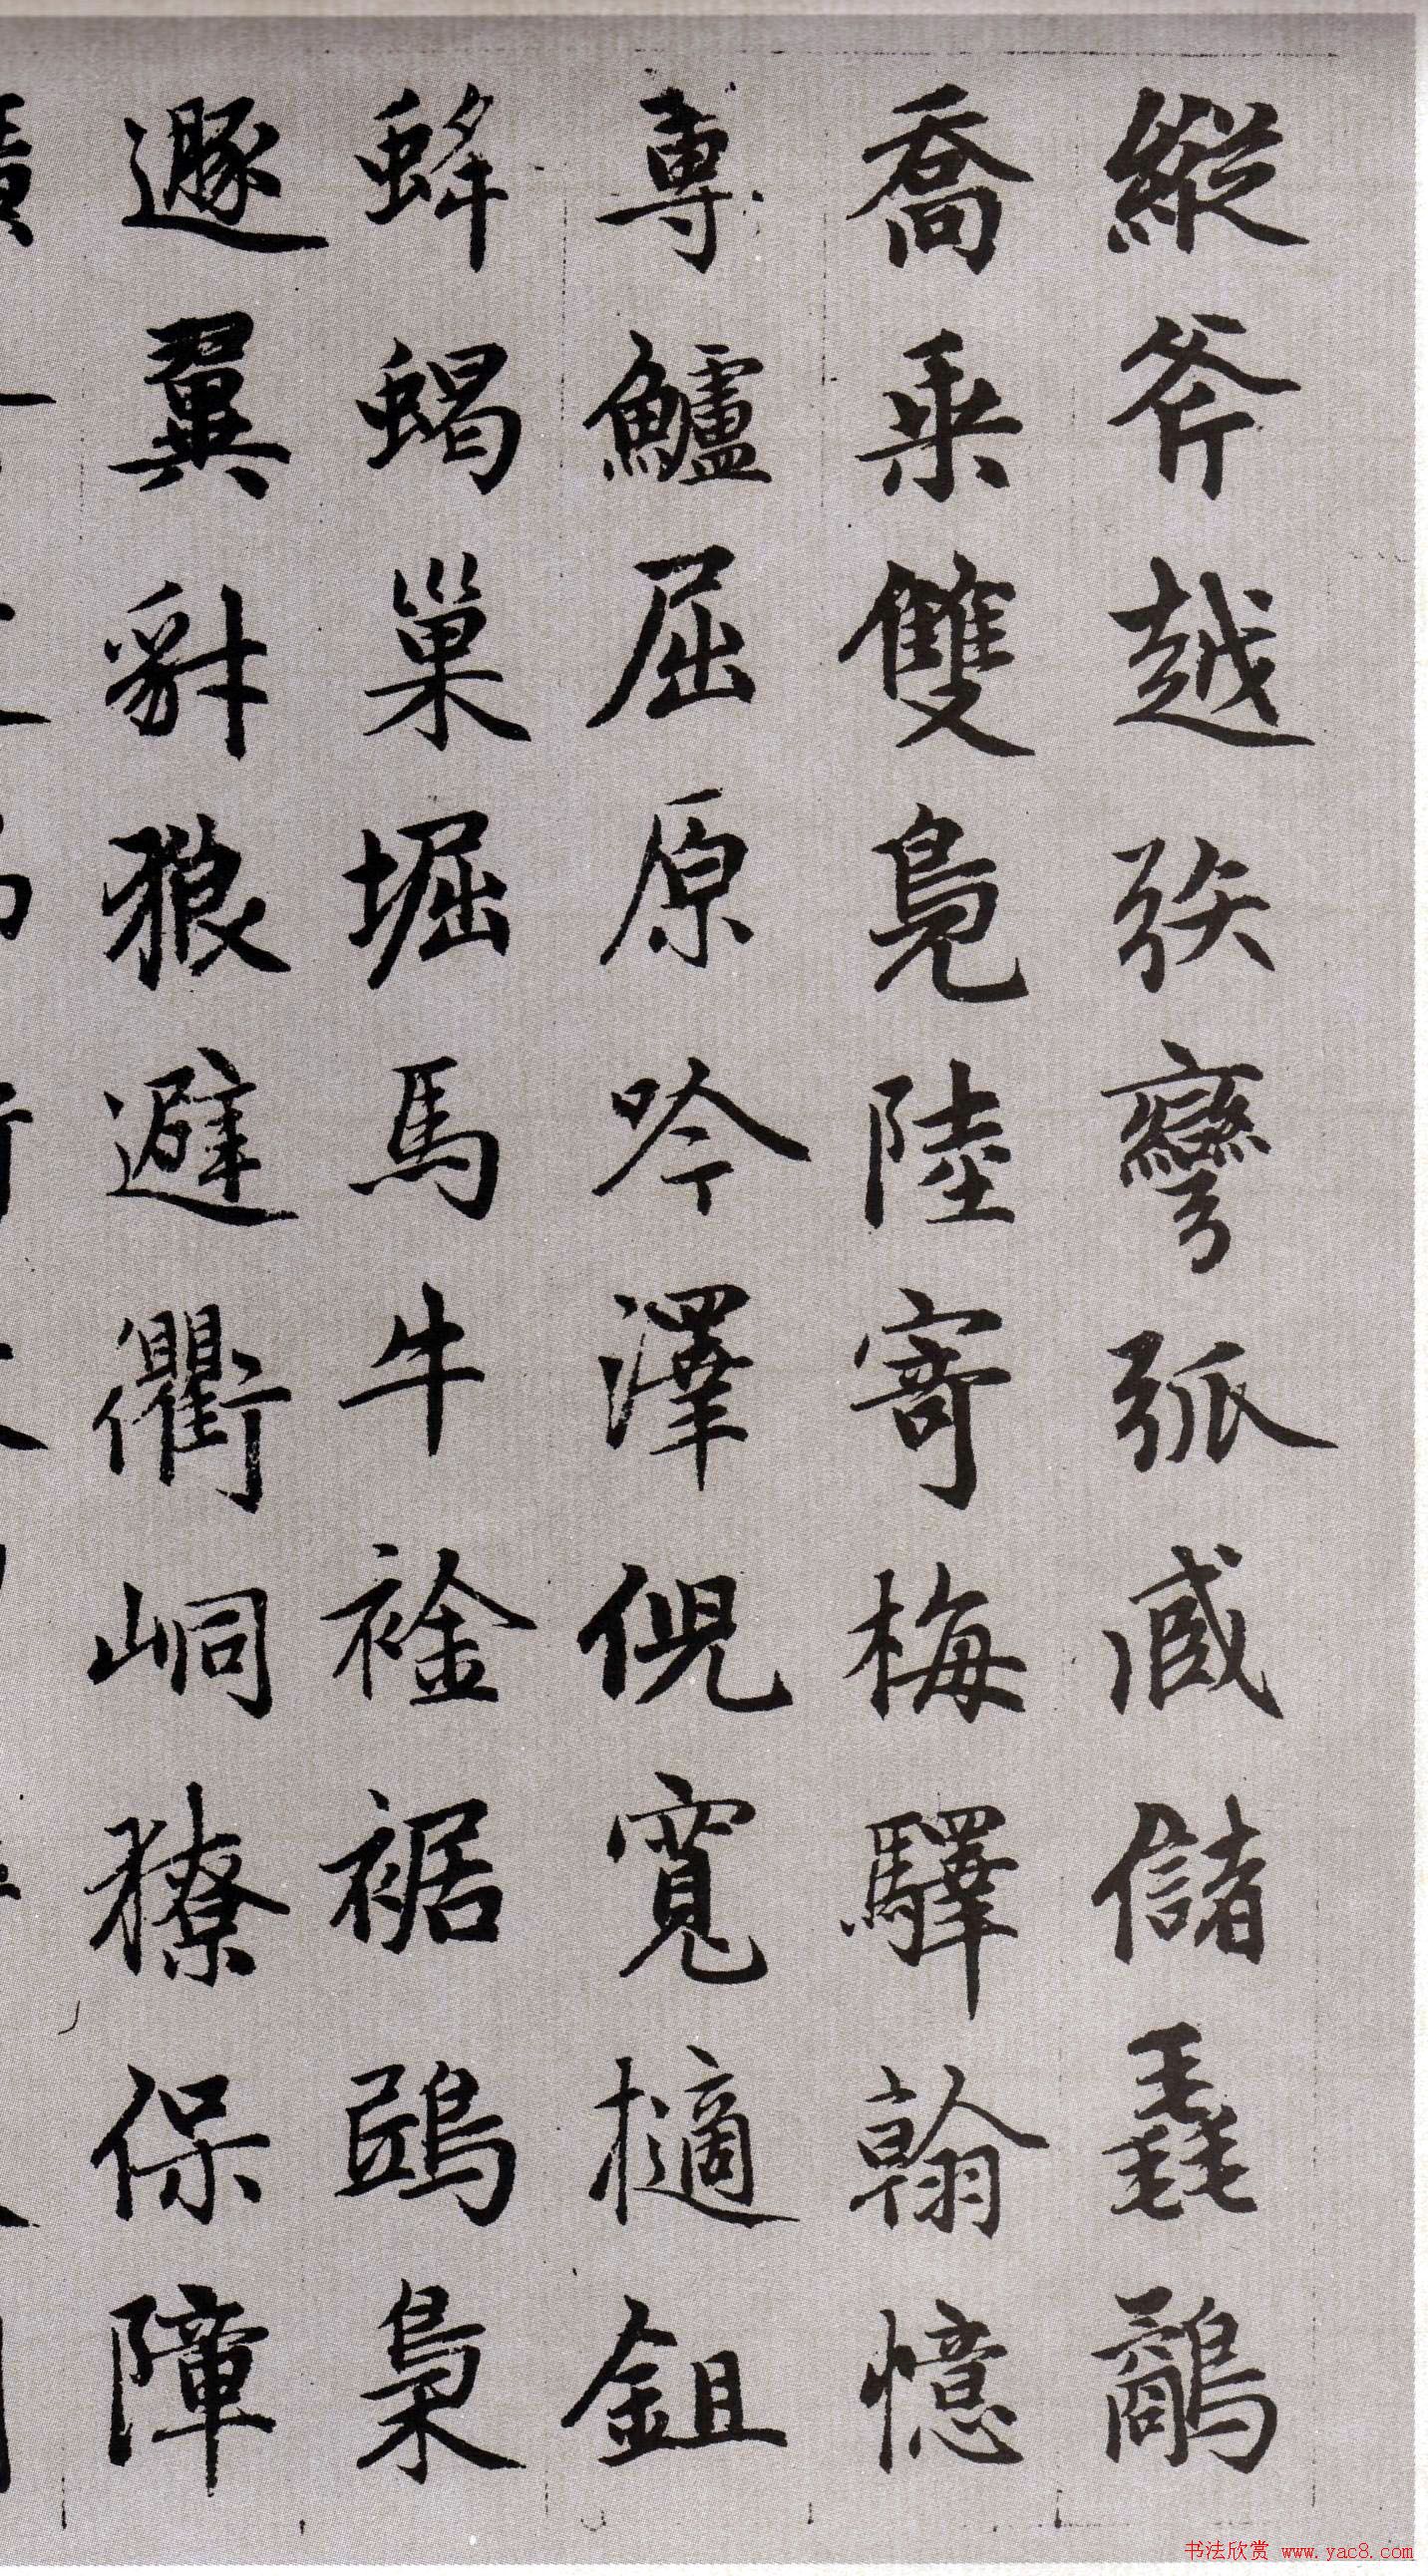 縱斧越彎弧臧儲毳
喬乘雙鳧陸寄梅驛翰憶
專鱸屈原吟澤倪寬擿鉏
蜂蝎巢堀馬牛裾鴟梟
遯翼豺狼避衢峒獠保障
书法欣赏 www.yac8.com